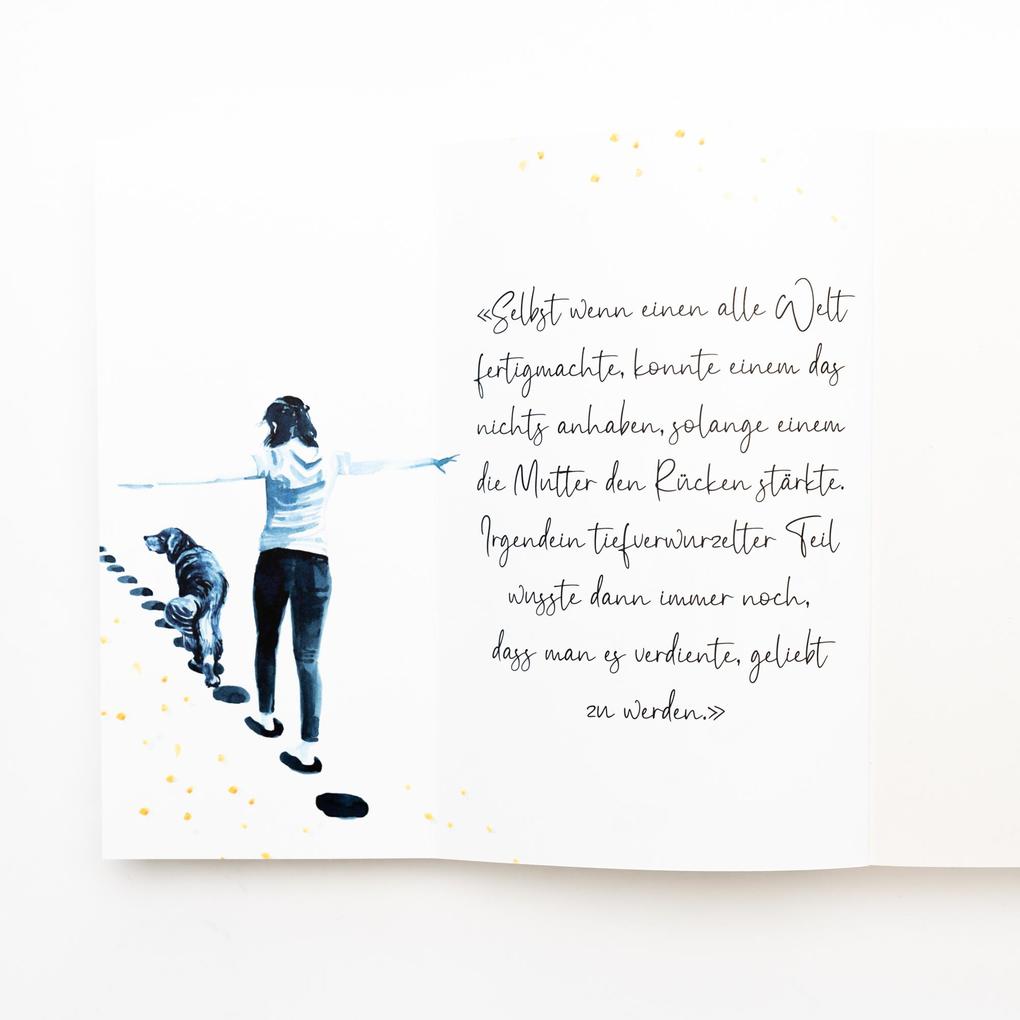 «Selbst wenn einen alle Welt
fertigmachte, konnte einem das
nichts anhaben, solange einem
die Mutter den Rücken stärkte.
Irgendein tiefverwurzelter Teil
wusste dann immer noch,
dass man es verdiente, geliebt
zu werden.»